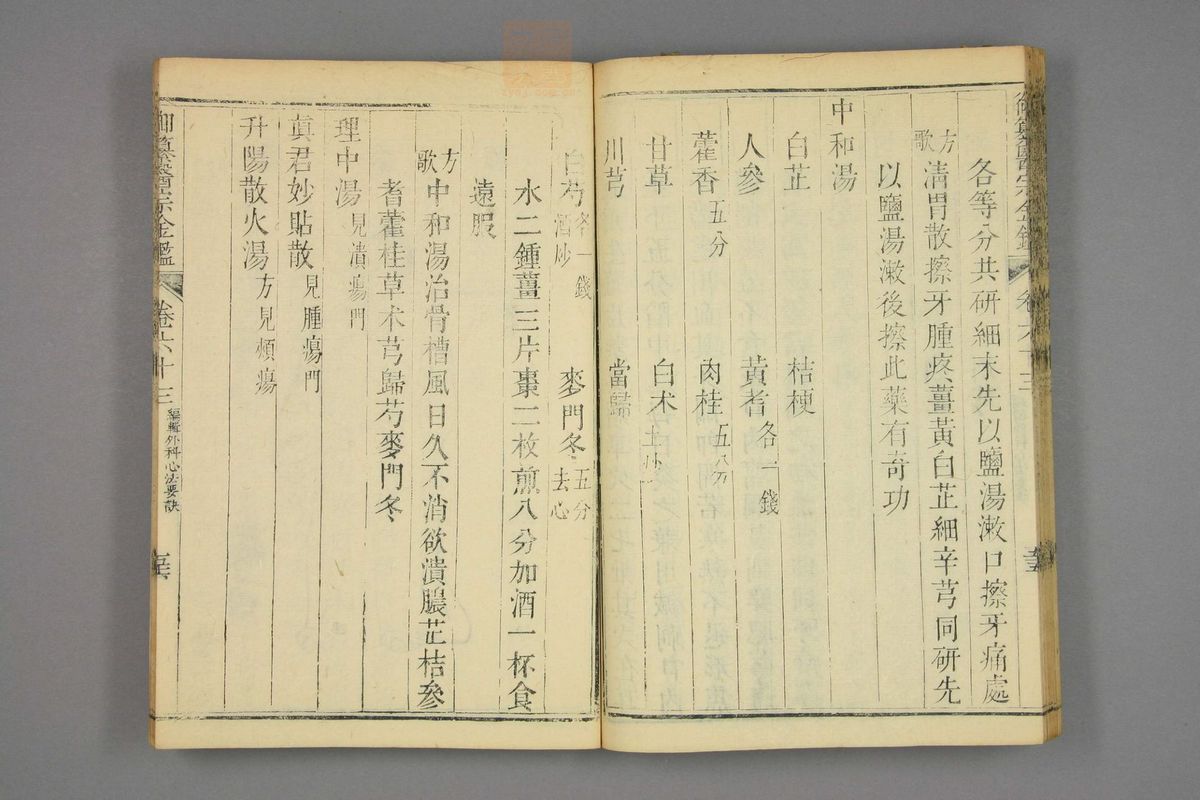 各等分共研細末先以鹽湯漱口擦牙痛處
方歌 清胃散擦牙腫疼薑黃白芷細辛芎同研先
以鹽湯漱後擦此藥有奇功
中和湯
白芷 桔梗
人參 黃耆各一錢
藿香五分 肉桂五分
甘草 白术土炒
川芎 當歸
白芍酒炒各一錢 麥門冬去心五分
水二鍾薑三片棗二枚煎八分加酒一杯食
遠服
方歌 中和湯治骨槽風日久不消欲潰膿芷桔參
耆藿桂草术芎歸芍麥門冬
理中湯見潰瘍門
真君妙貼散見腫瘍門
升陽散火湯方見頰瘍
御纂醫宗金鑑 卷六十三 編輯外科心法要訣